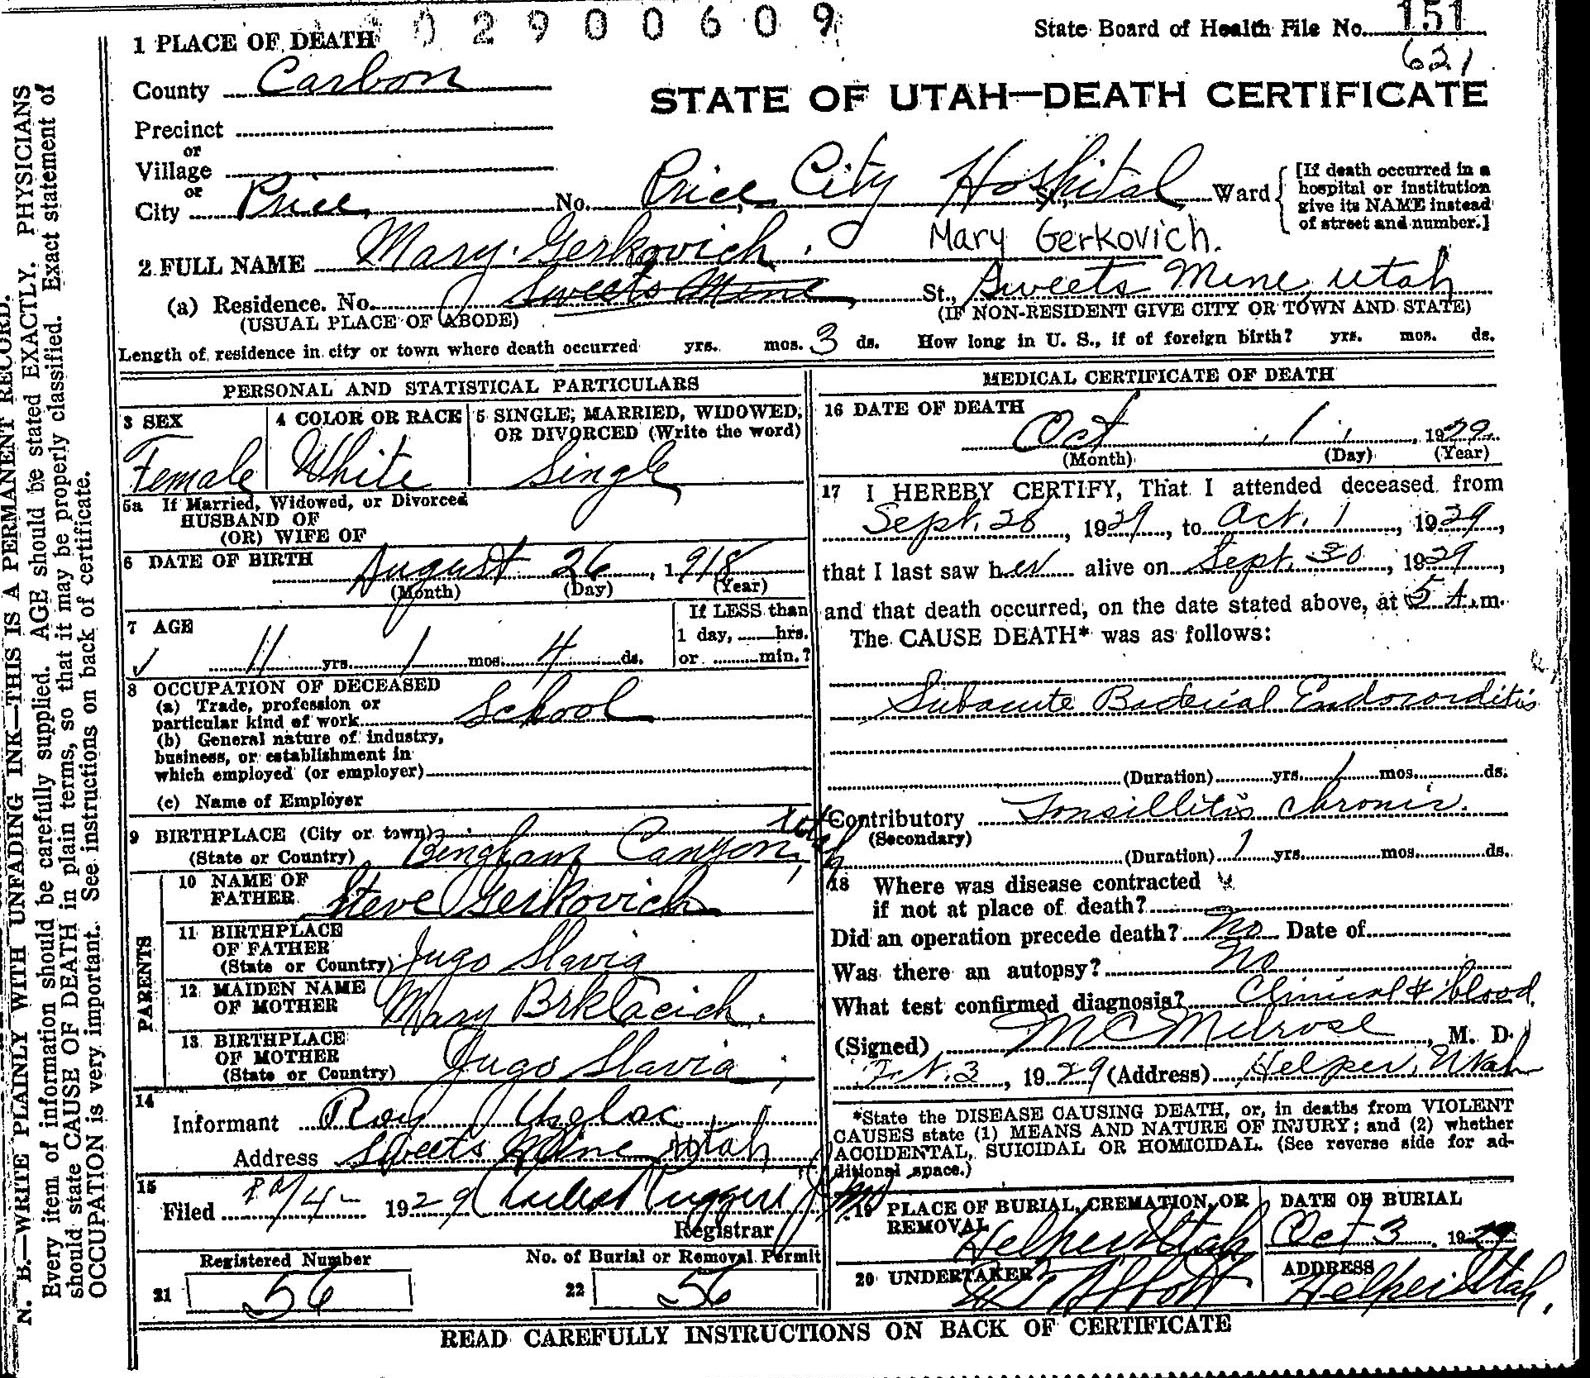 02900609
State Board of Health File No. 151
621
1 PLACE OF DEATH
County Carbon
STATE OF UTAH—DEATH CERTIFICATE
Precinct
or
Village
or
City Price No. Price City Hospital St., Ward
[If death occurred in a hospital or institution give its NAME instead of street and number.]
2 FULL NAME Mary Gerkovich Mary Gerkovich.
(a) Residence. No. Sweets Mine St., Sweets Mine, Utah
(USUAL PLACE OF ABODE) (IF NON-RESIDENT GIVE CITY OR TOWN AND STATE)
Length of residence in city or town where death occurred yrs. mos. 3 ds. How long in U. S., if of foreign birth? yrs. mos. ds.
PERSONAL AND STATISTICAL PARTICULARS
3 SEX
Female
4 COLOR OR RACE
White
5 SINGLE, MARRIED, WIDOWED, OR DIVORCED (Write the word)
Single
5a If Married, Widowed, or Divorced
HUSBAND OF
(OR) WIFE OF
6 DATE OF BIRTH August 26, 1918
(Month) (Day) (Year)
7 AGE
11 yrs. 1 mos. 4 ds.
If LESS than
1 day, hrs.
or min.?
8 OCCUPATION OF DECEASED
(a) Trade, profession or
particular kind of work School
(b) General nature of industry,
business, or establishment in
which employed (or employer)
(c) Name of Employer
9 BIRTHPLACE (City or town)
(State or Country) Bingham Canyon, Utah
PARENTS
10 NAME OF
FATHER Steve Gerkovich
11 BIRTHPLACE
OF FATHER
(State or Country) Jugo Slavia
12 MAIDEN NAME
OF MOTHER Mary Brklacich.
13 BIRTHPLACE
OF MOTHER
(State or Country) Jugo Slavia
14
Informant Roy Uzelac
Address Sweets Mine, Utah
15
Filed 1929
Registrar
Registered Number
21 56
No. of Burial or Removal Permit
22 56
MEDICAL CERTIFICATE OF DEATH
16 DATE OF DEATH
Oct 1, 1929
(Month) (Day) (Year)
17 I HEREBY CERTIFY, That I attended deceased from
Sept. 28, 1929, to Oct. 1, 1929,
that I last saw her alive on Sept. 30, 1929,
and that death occurred, on the date stated above, at 5 A.m.
The CAUSE DEATH* was as follows:
Subacute Bacterial Endocorditis
(Duration) yrs. 1 mos. ds.
Contributory Tonsillitis chronic.
(Secondary)
(Duration) 1 yrs. mos. ds.
18 Where was disease contracted
if not at place of death?
Did an operation precede death? No Date of
Was there an autopsy? No
What test confirmed diagnosis? Clinical & blood
(Signed) M C Melrose, M. D.
3, 1929 (Address) Helper, Utah
*State the DISEASE CAUSING DEATH, or, in deaths from VIOLENT
CAUSES state (1) MEANS AND NATURE OF INJURY; and (2) whether
ACCIDENTAL, SUICIDAL OR HOMICIDAL. (See reverse side for ad-
ditional space.)
19 PLACE OF BURIAL, CREMATION, OR
REMOVAL Helper Utah
DATE OF BURIAL
Oct 3, 1929
20 UNDERTAKER
ADDRESS
Helper Utah,
READ CAREFULLY INSTRUCTIONS ON BACK OF CERTIFICATE
N. B.—WRITE PLAINLY WITH UNFADING INK—THIS IS A PERMANENT RECORD.
Every item of information should be carefully supplied. AGE should be stated EXACTLY. PHYSICIANS
should state CAUSE OF DEATH in plain terms, so that it may be properly classified. Exact statement of
OCCUPATION is very important. See instructions on back of certificate.